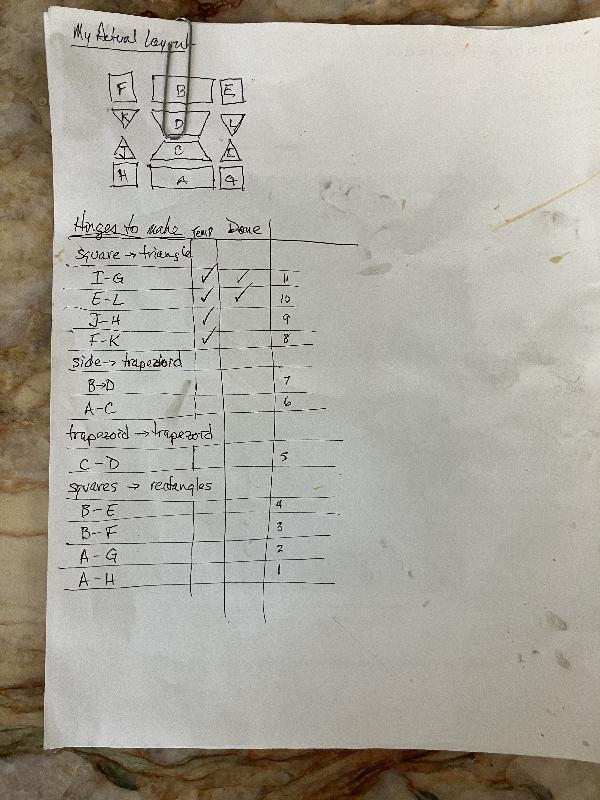 My Actual Layout
F B E
K D L
J C I
H A G
Hinges to make Temp Done
square → triangle
I-G ✓ ✓ 11
E-L ✓ ✓ 10
J-H ✓ 9
F-K ✓ 8
side → trapezoid
B→D 7
A-C 6
trapezoid → trapezoid
C-D 5
squares → rectangles
B-E 4
B-F 3
A-G 2
A-H 1